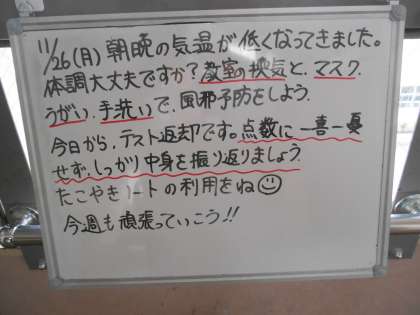 11/26(月) 朝晩の気温が低くなってきました。
体調大丈夫ですか？教室の換気と、マスク、
うがい、手洗いで、風邪予防をしよう。
今日から、テスト返却です。点数に一喜一憂
せず、しっかり中身を振り返りましょう。
たこやきノートの利用をね☺
今週も頑張っていこう!!